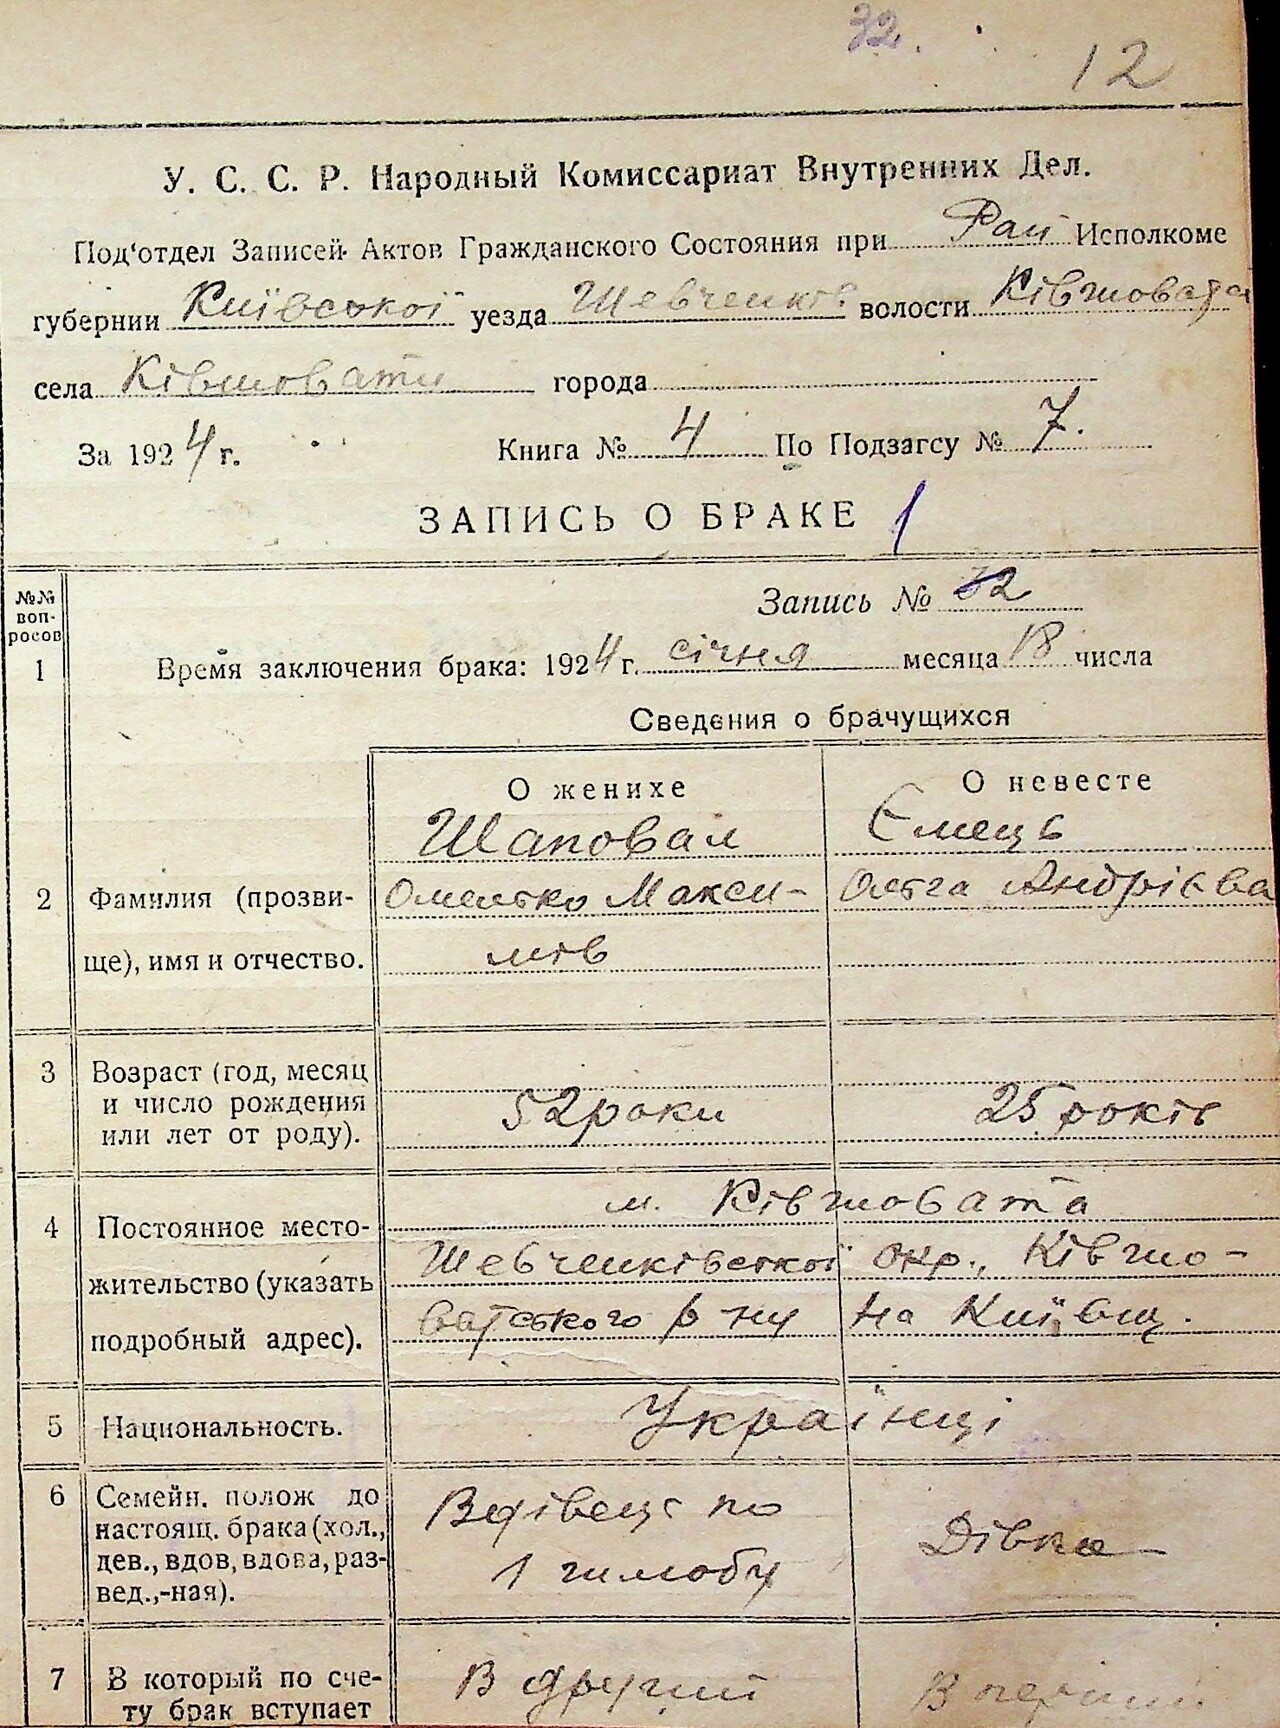 32.
12
У. С. С. Р. Народный Комиссариат Внутренних Дел.
Под'отдел Записей Актов Гражданского Состояния при Рай Исполкоме
губернии Київської уезда Шевченків волости Ківшовата
села Ківшовати города
За 1924 г. Книга № 4 По Подзагсу № 7.
ЗАПИСЬ О БРАКЕ 1
№№ воп-росов
Запись № 32
1 Время заключения брака: 1924 г. січня месяца 18 числа
Сведения о брачущихся
О женихе О невесте
Шаповал Ємець
2 Фамилия (прозви- Омелько Макси- Ольга Андрієва
ще), имя и отчество. мів
3 Возраст (год, месяц
и число рождения 52 роки 25 років
или лет от роду).
м. Ківшовата
4 Постоянное место-
жительство (указать Шевченківської окр., Ківшо-
подробный адрес). ватського р ну на Київщ.
5 Национальность. Українці
6 Семейн. полож до Вдівець по
настоящ. брака (хол., Дівка
дев., вдов, вдова, раз- 1 шлюбу
вед.,-ная).
7 В который по сче- В другий В перший
ту брак вступает